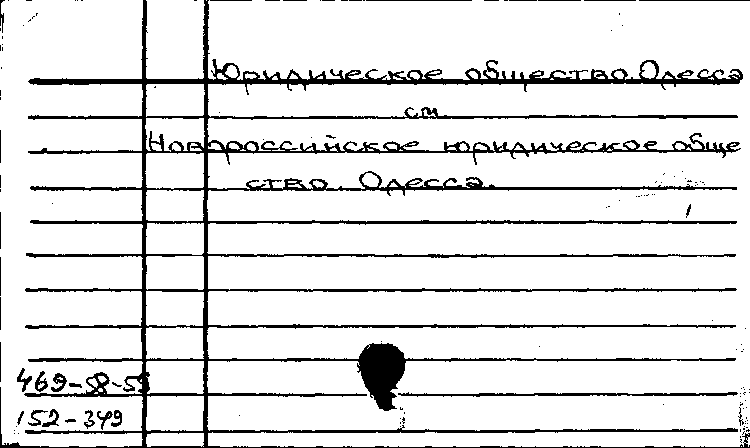 Юридическое общество. Одесса
см.
Новороссийское юридическое обще
ство. Одесса.
469-58-59
152-349